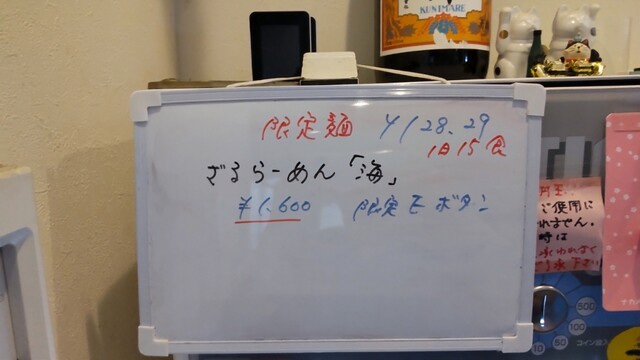 KUNIMARE
限定麺 4/28、29
1日15食
ざるらーめん「海」
¥1.600 限定モボタン
ご使用に
れません。
時は
500
100
10
60
コイン投入